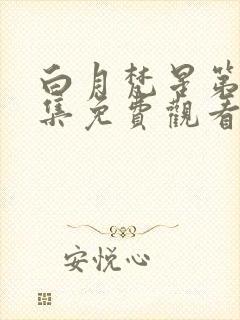 白月梵星第
集免費觀看
安悦心